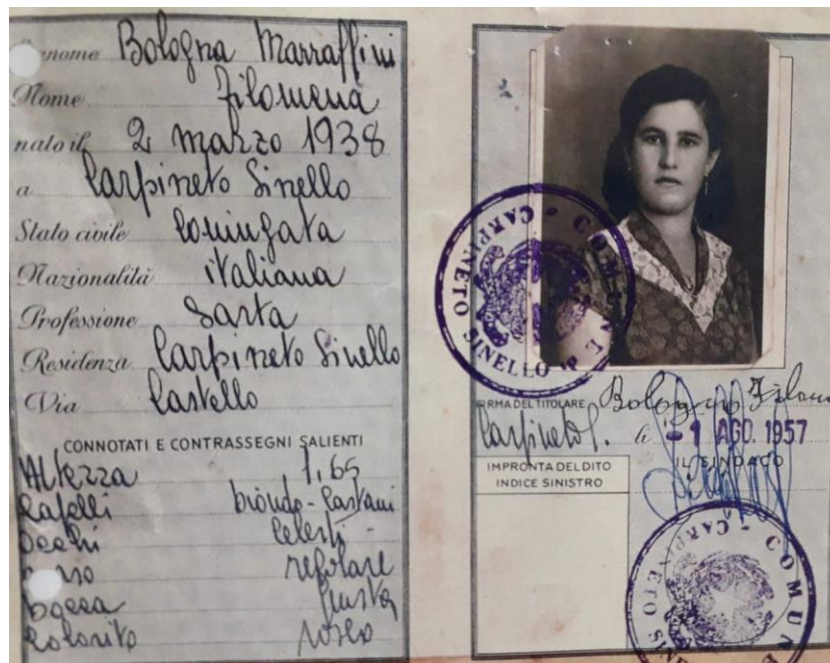 Cognome Bologna Marraffini
Nome Filomena
nato il 2 marzo 1938
a Carpineto Sinello
Stato civile Coniugata
Nazionalità italiana
Professione Sarta
Residenza Carpineto Sinello
Via Castello
CONNOTATI E CONTRASSEGNI SALIENTI
Altezza 1,65
Capelli biondo-Castani
Occhi Celesti
regolare
bocca giusta
Colorito roseo
COMUNE DI CARPINETO SINELLO
FIRMA DEL TITOLARE Bologna Filom
Carpineto S. li -1 AGO. 1957
IMPRONTA DEL DITO
INDICE SINISTRO
IL SINDACO
COMUN CARPINETO SIN